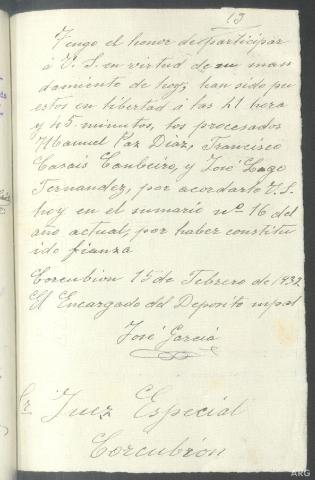 13
Tengo el honor de participar
á V. S. en virtud de su man
damiento de hoy, han sido pu
estos en libertad á las 21 hora
y 45 minutos, los procesados
Manuel Paz Diaz, Francisco
Carais Canbeiro, y José Lago
Fernandez, por acordarlo V. S.
hoy en el sumario nº 16 del
año actual, por haber constitu
ido fianza
Corcubion 15 de Febrero de 1932
El Encargado del Deposito mpal
José García
Sr Juez Especial
Corcubión
ARG